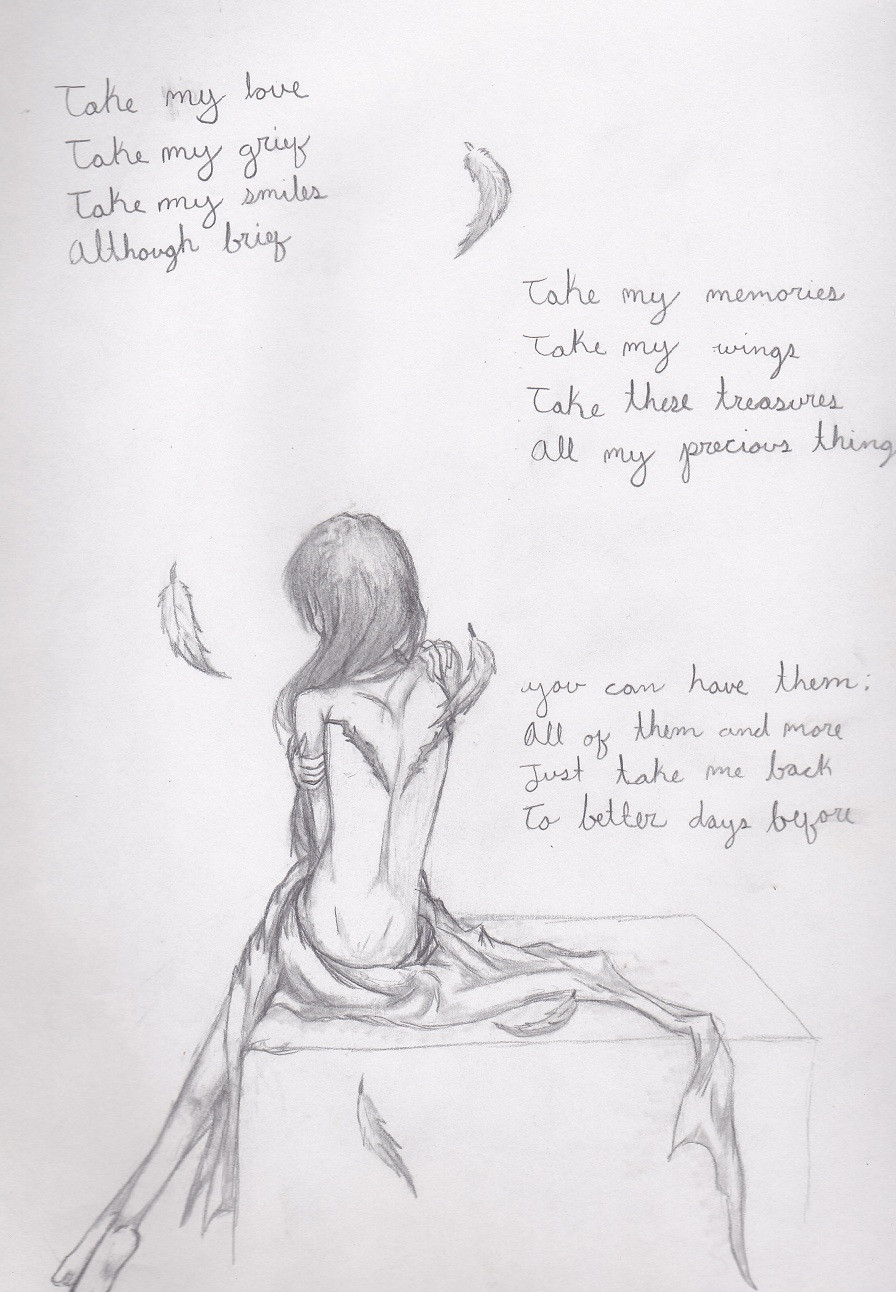 Take my love
Take my grief
Take my smiles
Although brief
Take my memories
Take my wings
Take these treasures
All my precious thing
you can have them;
All of them and more
Just take me back
To better days before